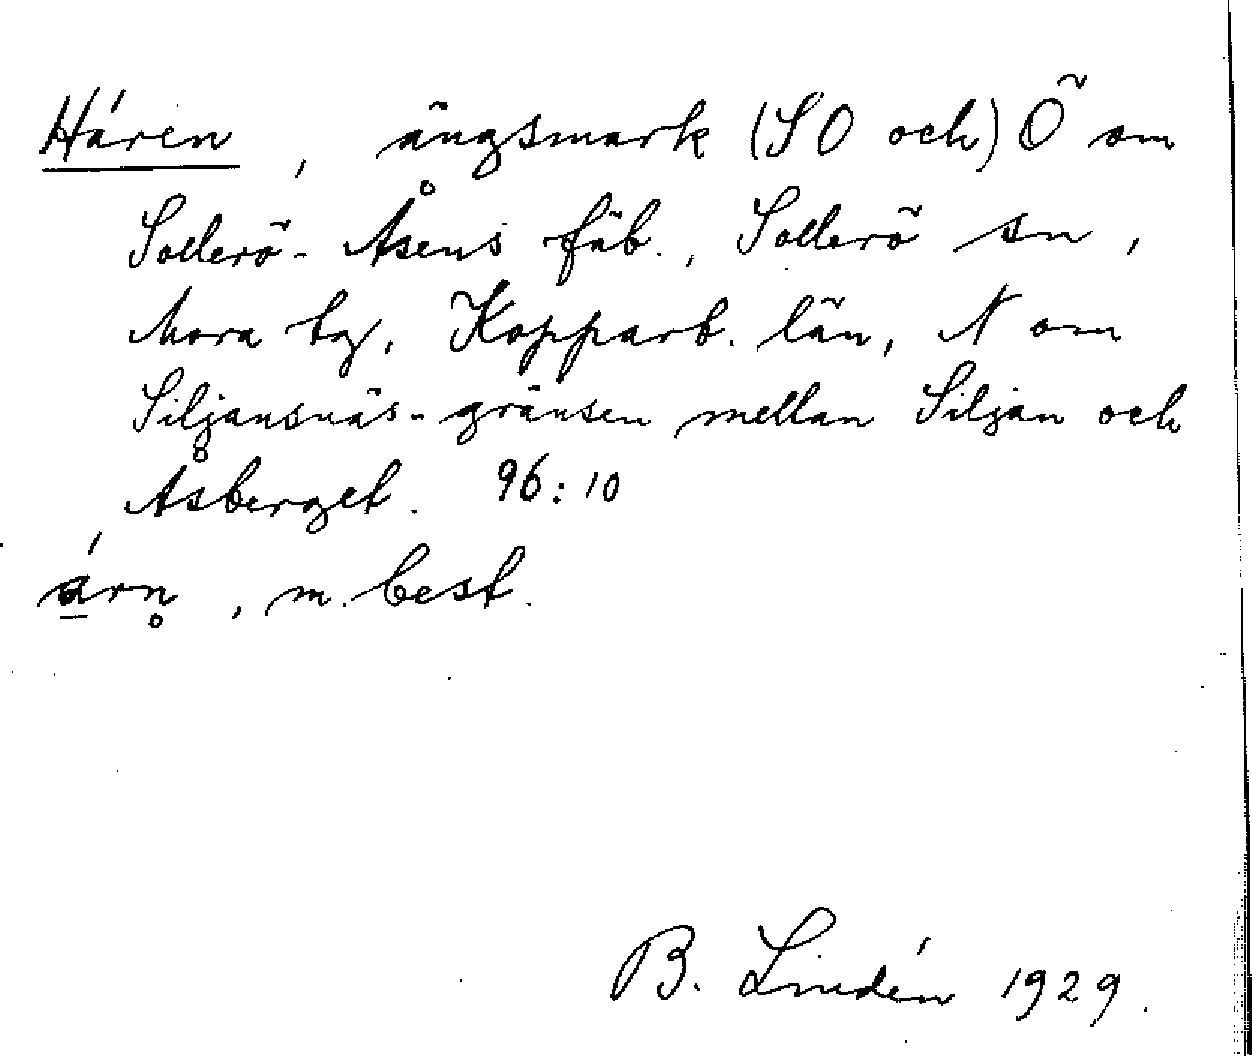 Háren, ängsmark (SO och) Ö om
Sollerö-Åsens fäb., Sollerö sn,
Mora tg, Kopparb. län, N om
Siljansnäs-gränsen mellan Siljan och
Åsberget. 96:10
á̱rn̥, m. best.
B. Lindén 1929.